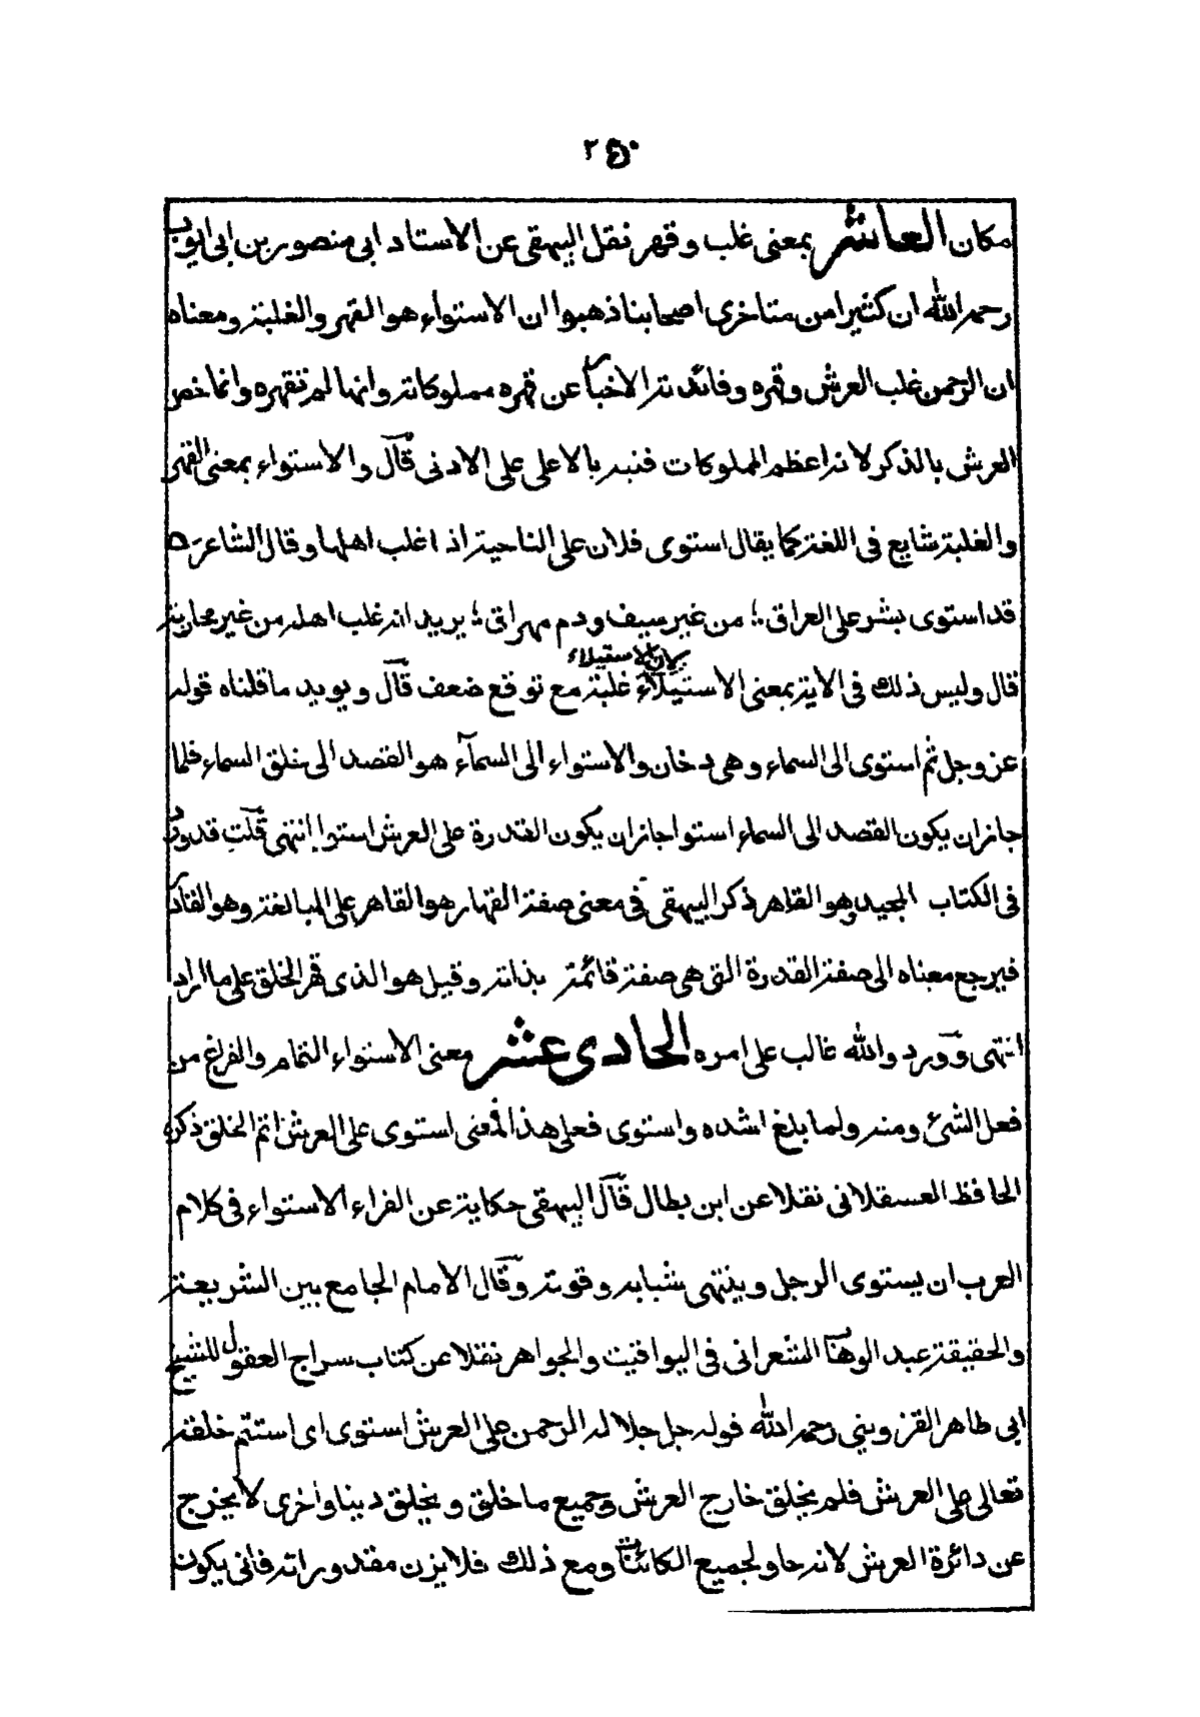 ٢٥٠
مكان العاشر بمعنى غلب وقهر نقل البيهقى عن الاستاد ابى منصور بن ابى ايوب
رحمه الله ان كثيرا من متاخرى اصحابنا ذهبوا ان الاستواء هو القهر والغلبة ومعناه
ان الرحمن غلب العرش وقهره وفائدته الاخبار عن قهره مملوكاته وانها لم تقهره وانما خص
العرش بالذكر لانه اعظم المملوكات فنبه بالاعلى على الادنى قال والاستواء بمعنى القهر
والغلبة شايع فى اللغة كما يقال استوى فلان على الناحية اذا غلب اهلها وقال الشاعر
قد استوى بشر على العراق ؛ من غير سيف ودم مهراق ؛ يريد انه غلب اهله من غير محاربة
لان الاستيلاء
قال وليس ذلك فى الاية بمعنى الاستيلاء غلبة مع توقع ضعف قال ويويد ما قلناه قوله
عز وجل ثم استوى الى السماء وهى دخان والاستواء الى السمآء هو القصد الى خلق السماء فلما
جاز ان يكون القصد الى السماء استوا جاز ان يكون القدرة على العرش استوا انتهى قلت قد ورد
فى الكتاب المجيد وهو القاهر ذكر البيهقى فى معنى صفة القهار هو القاهر على المبالغة وهو القادر
فيرجع معناه الى صفة القدرة التى هى صفة قائمة بذاته وقيل هو الذى قهر الخلق على ما اراد
انتهى وورد والله غالب على امره الحادى عشر معنى الاستواء التمام والفراغ من
فعل الشئ ومنه ولما بلغ اشده واستوى فعلى هذا المعنى استوى على العرش اتم الخلق ذكره
الحافظ العسقلانى نقلا عن ابن بطال قال البيهقى حكاية عن الفراء الاستواء فى كلام
العرب ان يستوى الرجل وينتهى شبابه وقوته وقال الامام الجامع بين الشريعة
والحقيقة عبد الوهاب الشعرانى فى اليواقيت والجواهر نقلا عن كتاب سراج العقول للشيخ
ابى طاهر القزوينى رحمه الله قوله جل جلاله الرحمن على العرش استوى اى استتم خلقه
تعالى على العرش فلم يخلق خارج العرش وجميع ما خلق ويخلق دينا واخرى لا يخرج
عن دائرة العرش لانه حاو لجميع الكائنات ومع ذلك فلا يزن مقدوراته فانى يكون